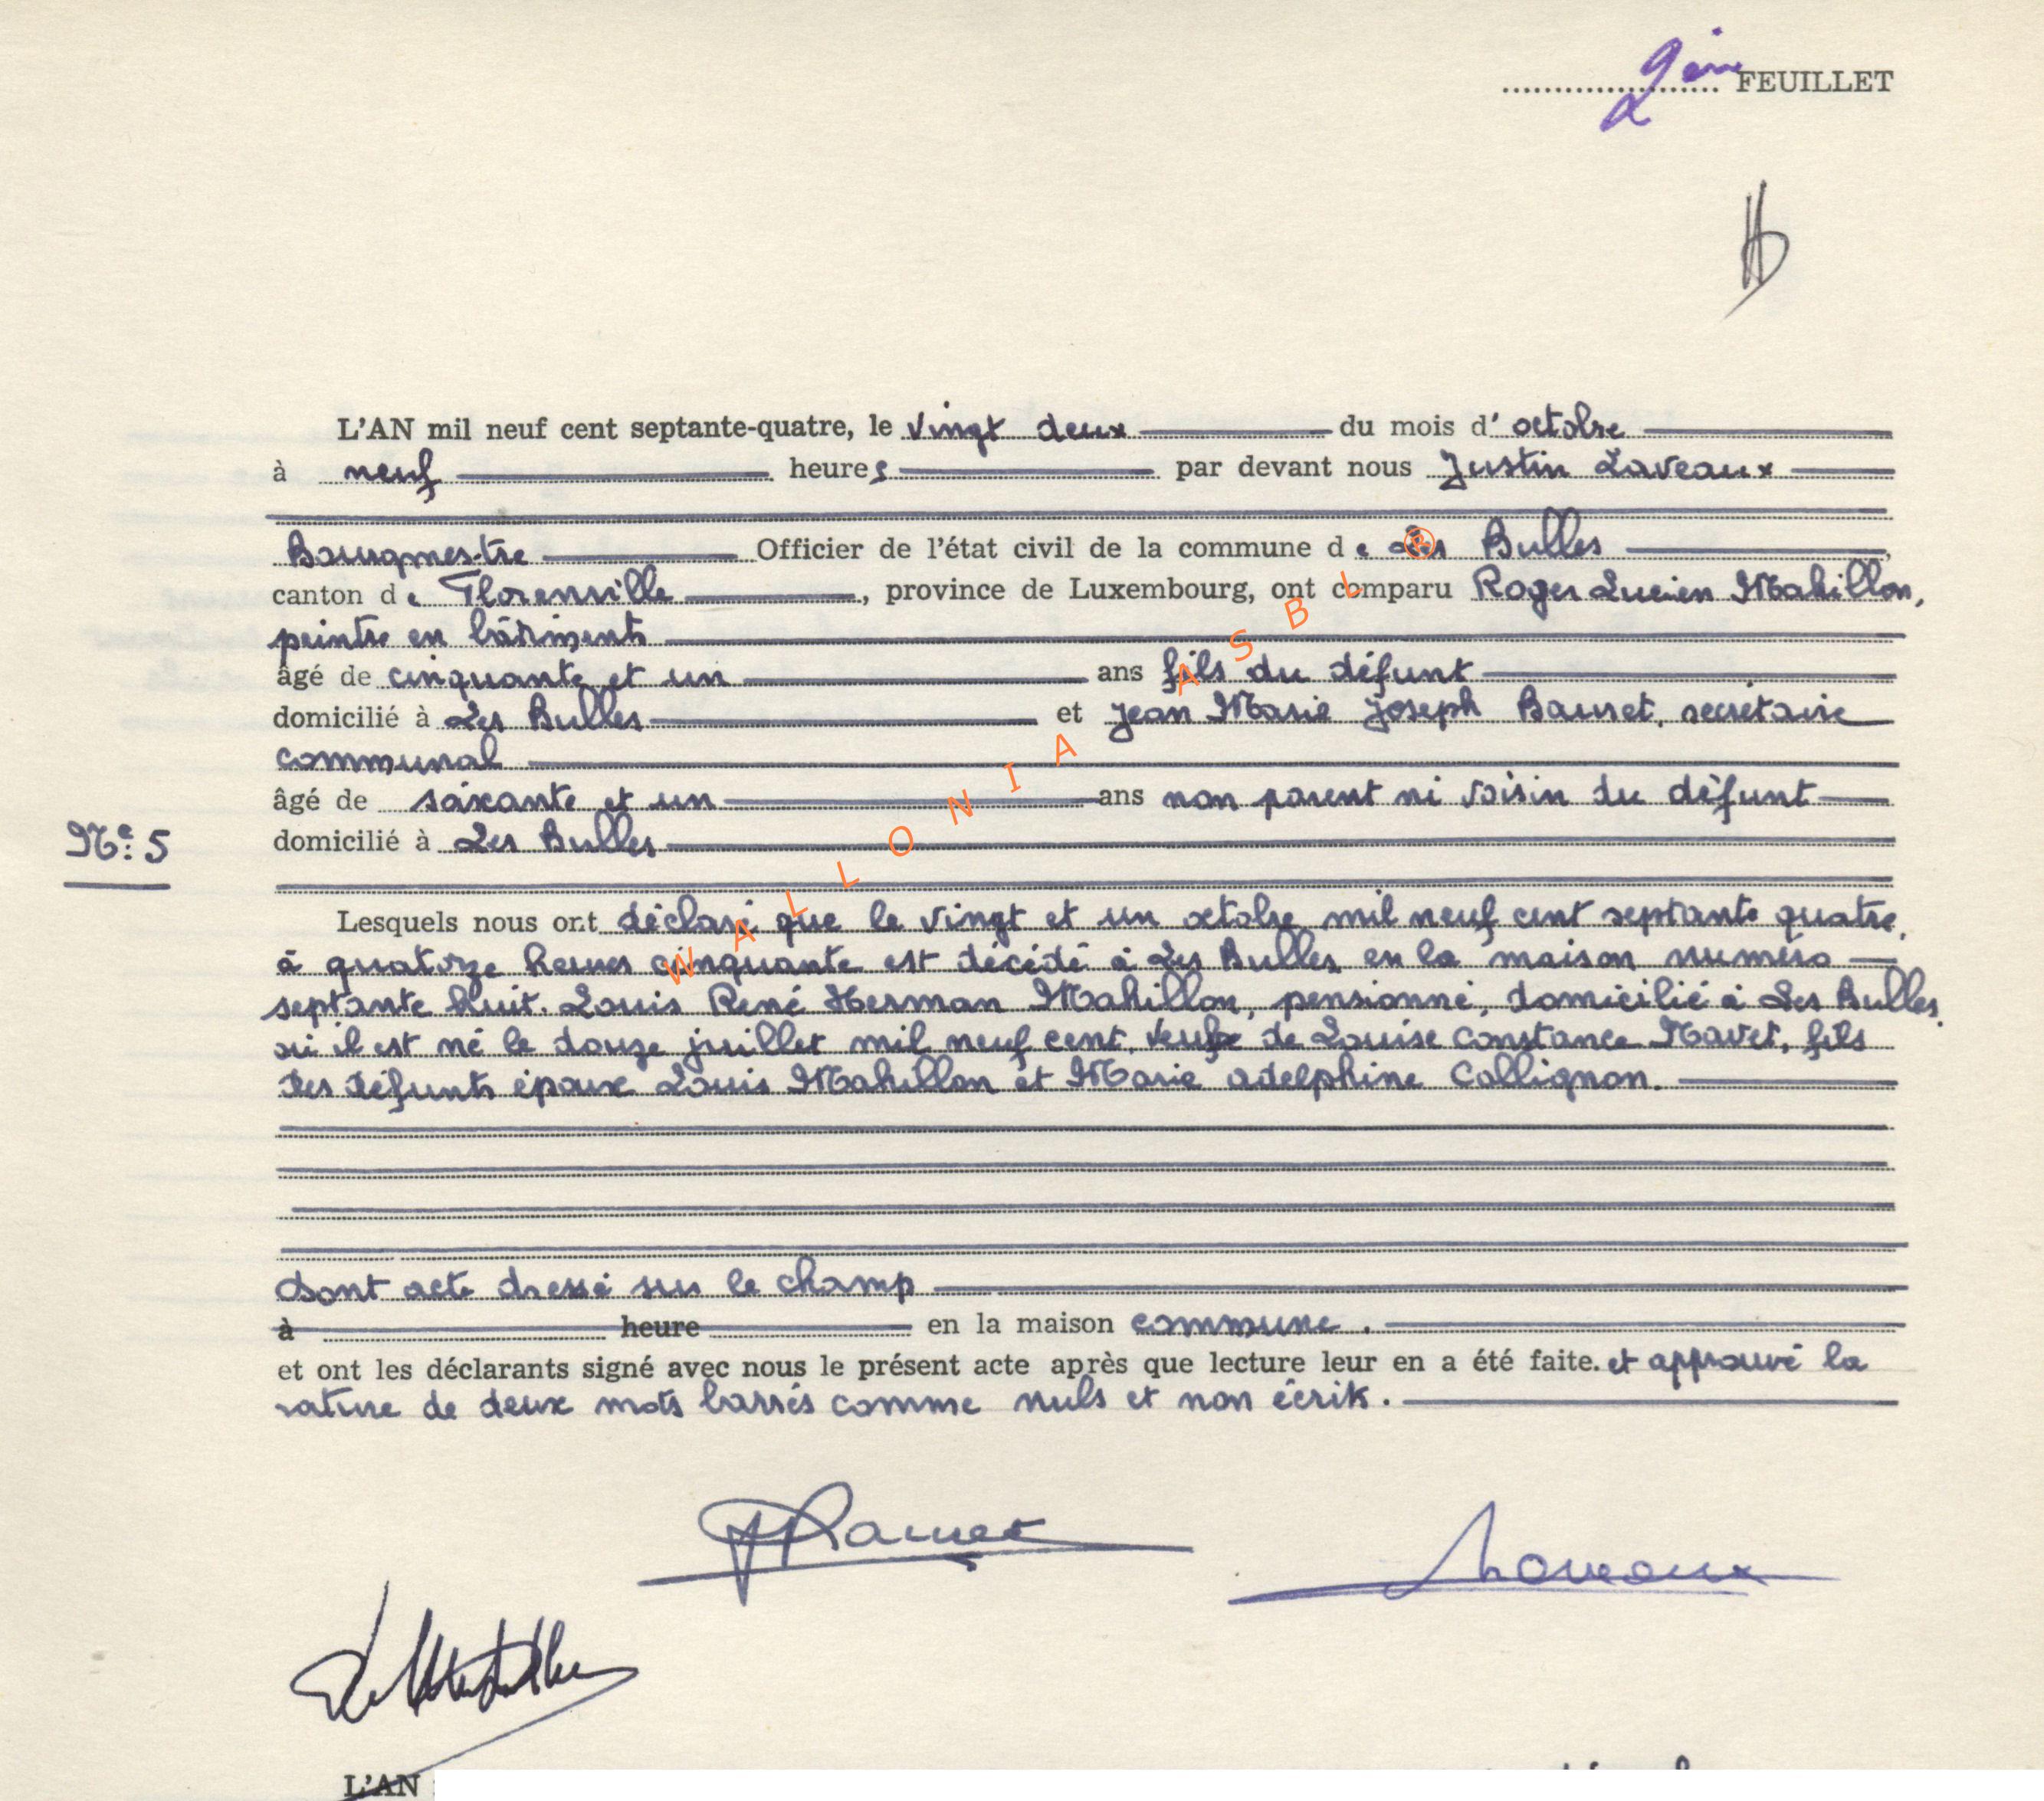 2ème FEUILLET
L'AN mil neuf cent septante-quatre, le vingt deux du mois d' octobre
à neuf heures par devant nous Justin Laveaux
Bourgmestre Officier de l'état civil de la commune de Les Bulles,
canton de Florenville, province de Luxembourg, ont comparu Roger Lucien Mahillon,
peintre en bâtiments
âgé de cinquante et un ans fils du défunt
domicilié à Les Bulles et Jean Marie Joseph, secrétaire
communal
âgé de soixante et un ans non parent ni voisin du défunt
N°: 5
domicilié à Les Bulles
Lesquels nous ont déclaré que le vingt et un octobre mil neuf cent septante quatre,
à quatorze heures cinquante est décédé à Les Bulles, en la maison numéro
septante huit. Louis René Herman Mahillon, pensionné, domicilié à Les Bulles,
où il est né le douze juillet mil neuf cent, de Louise Constance, fils
des défunts époux Louis Mahillon et Marie Adelphine Collignon.
Dont acte dressé sur le champ
à heure en la maison commune.
et ont les déclarants signé avec nous le présent acte après que lecture leur en a été faite. et approuvé la
rature de deux mots barrés comme nuls et non écrits.
Laveaux
L'AN
WALLONIA ASBL ®